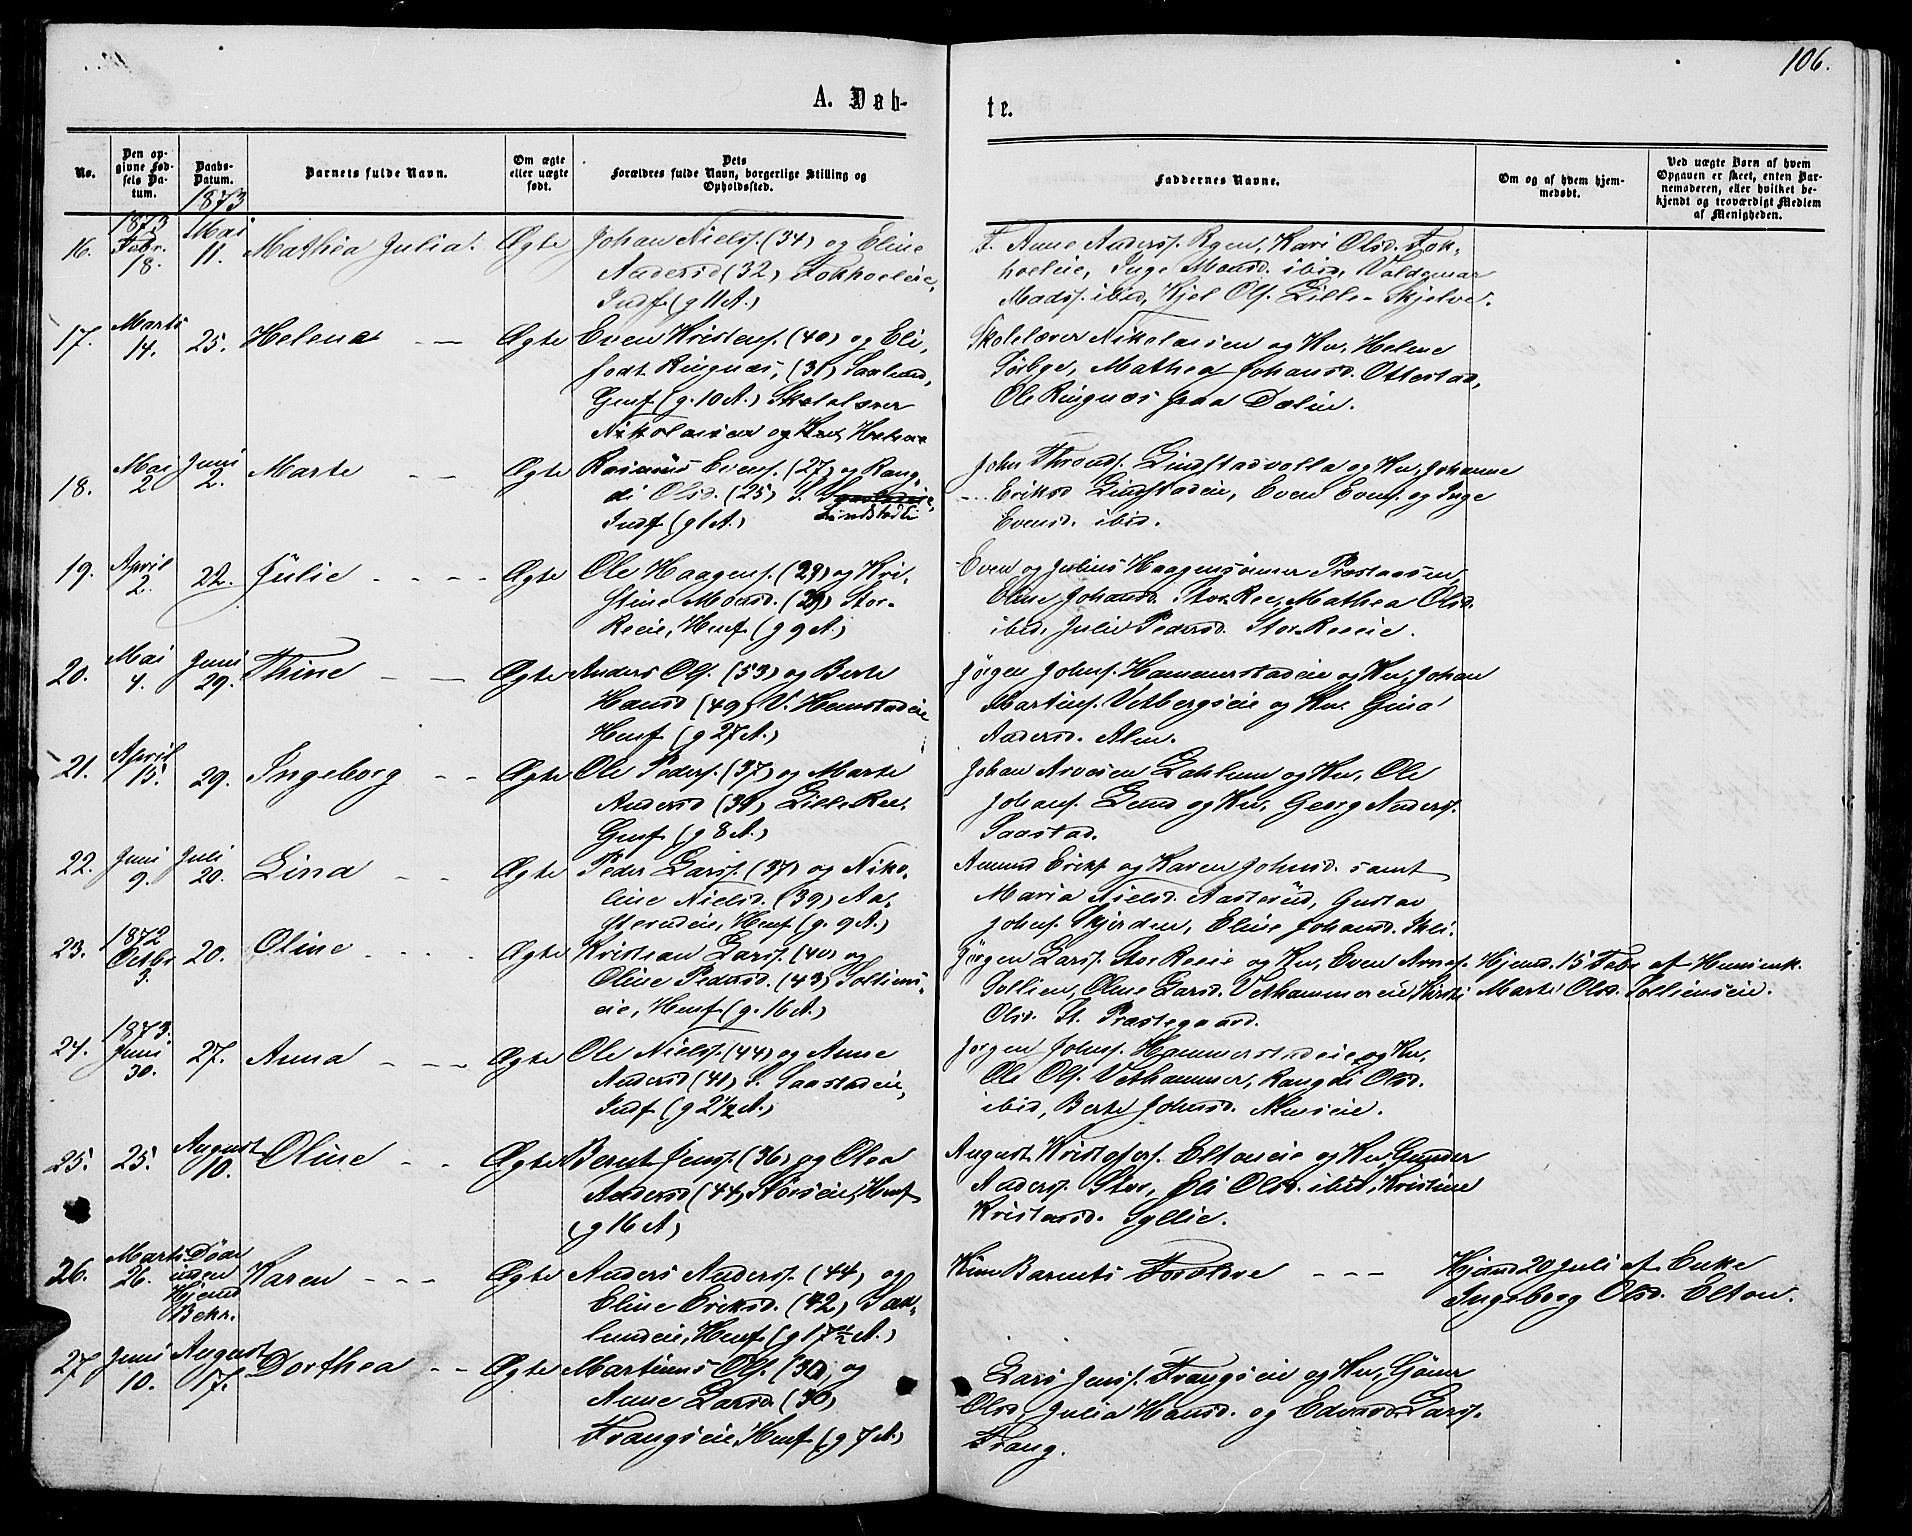 106.
A. Døb-
te.
No.
Den op-
givne Fød-
sels Da-
tum.
Daabs-
Datum.
1873
Barnets fulde Navn.
Om ægte
eller uægte
født.
Dets
Forældres fulde Navn, borgerlige Stilling og
Opholdssted.
Faddernes Navne.
Om og af hvem hjem-
medøbt.
Ved uægte Børn af hvem
Opgaven er skeet, enten Bar-
nemoderen, eller hvilket be-
kjendt og troværdigt Medlem
af Menigheden.
16. 1873 Febr. 18. Mai 11. Mathea Julia. Ægte Johan Nielss. (34) og Eline
Andersd (32) Fokholeie,
Indf. (g 11 A.)
F. Anne Anderss. Rgen, Kari Olsd. Fok-
holeie, Inge Monsd. ibid, Valdemar
Madss. ibid, Kjel Ols. Lille-Skjelve.
17. Marts 14. 25. Helena — — Ægte Even Kristens. (40) og Eli,
født Ringnæs, (31) Saalund,
Gmf. (g. 10 A.) Skolelærer
Nikolaisen og Kne Helene
Skolelærer Nikolaisen og Kn, Helene
Sørbye, Mathea Johansd. Ottestad,
Ole Ringnæs fraa Dælin.
18. Mai 2. Juni 2. Marte — — Ægte Rasmus Evens. (27) og Rang-
di Olsd. (25) S.
Lindstadei
Indf. (g 1 A.)
John Thronds. Lindstadvolla og Kn, Johanne
Eriksd Lindstadeie, Even Evens. og Inge
Evensd. ibid.
19. April 2. 22. Julie - - - - Ægte Ole Haagens. (29) og Kri-
stine Monsd. (29) Stor-
Reeie, Hmf. (g 9 A.)
Even og Julius Haagensønner Præstaasen,
Oline Johansd. Stor Ree, Mathea Olsd.
ibid, Julie Pedersd. Stor Reeeie.
20. Mai 4. Juni 29. Thine — — Ægte Anders Ols. (53) og Berte
Hansd (49) V. Hemstadeie
Hmf. (g 27 A.)
Jørgen Johns. Hammerstadeie og Kn, Johan
Martins. Vetbergseie og Kn. Gina
Andersd. Alm.
21. April 15. 29. Ingeborg - - Ægte Ole Peders. (37) og Marte
Andersd (34) Lille Ree,
Gmf. (g 8 A.)
Johan Arvesen Lahlum og Kn, Ole
Johans. Lund og Kn, Georg Anders.
Saastad.
22. Juni 9. Juli 20. Lina - - Ægte Peder Larss. (37) og Niko-
line Nielsd. (39) Aa-
sterudeie, Hmf. (g. 9 A.)
Amund Eriks. og Karen Johnsd. samt
Maria Nielsd. Aasterud, Gustav
Johns. Skjerden, Eline Johansd. Skei.
23. 1872 Octbr 3. 20. Oline - - - - Ægte Kristian Larss. (40) og
Oline Pedersd. (43) Solliens-
eie, Hmf. (g. 16 A.)
Jørgen Larss. Stor Reeie og Kn, Even Arnes.
Sollien, Oline Larsd. Vethammereie, Kirsti
Olsd. St. Præstegaard.
Hjemd. 15 Febr af Husienk.
Marte Olsd. Solliensieie.
24. 1873. Juni 30. 27. Anna - - - Ægte Ole Nielss. (44) og Anne
Andersd (41) S. Saastadeie,
Indf. (g 2 1/2 A.)
Jørgen Johns. Hammerstadeie og Kn,
Ole Ols. Vethammer, Rangdi Olsd.
ibid, Berte Johnsd. Almseie.
25. 25. August 10. Oline - - Ægte Bernt Jenss. (36) og Olea
Andersd (44) Storseie, Hmf.
(g 16 A)
August Kristofers. Eltoneie og Kn, Gunder
Anders. Stor, Eli Olsd. ibid, Kristine
Kristansd. Syllie.
26. Marts 26. Døde
uden
Hjemd
Bekr. Karen - - - Ægte Anders Anderss. (44) og
Eline Eriksd. (42) Saa-
lundeie, Hmf. (g 17 1/2 A.)
Kun Barnets Forældre - - -
Hjemd 20 Juli af Enke
Ingeborg Olsd. Elton.
27 Juni 10. August 17. Dorthea - - Ægte Martinus Ols. (30) og
Anne Larsd. (30)
Frangseie Hmf. (g 7 A.)
Lars Jenss. Frangseie og Kn, Gøner
Olsd, Julia Hansd. og Edvard Larss.
Frang.